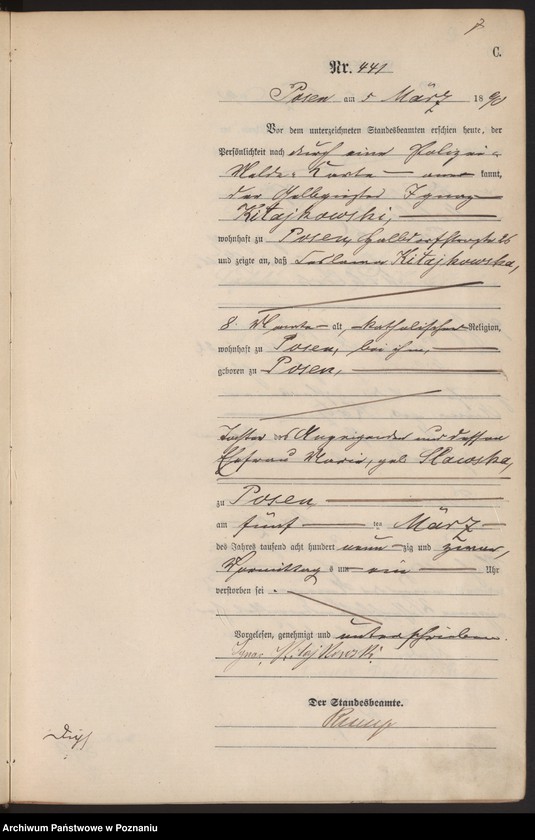 C.
Nr. 441
Posen am 5 März 18
Vor dem unterzeichneten Standesbeamten erschien heute, der
Persönlichkeit nach durch eine Polizei-
Melde-Karte kannt,
der Gelbgießer Ignaz
Kitajkowski,
wohnhaft zu Posen, Halbdorfstraße 26
und zeigte an, daß Kitajkowska,
8 Monate alt, katholischer Religion,
wohnhaft zu Posen, bei ihm,
geboren zu Posen,
Tochter des Anzeigenden und dessen
Ehefrau Marie, geb. Sławska,
zu Posen
am fünf ten März
des Jahres tausend acht hundert neun zig und zwei,
Vormittags um ein Uhr
verstorben sei.
Vorgelesen, genehmigt und unterschrieben.
Ignac Kitajkowski
Der Standesbeamte.
Archiwum Państwowe w Poznaniu